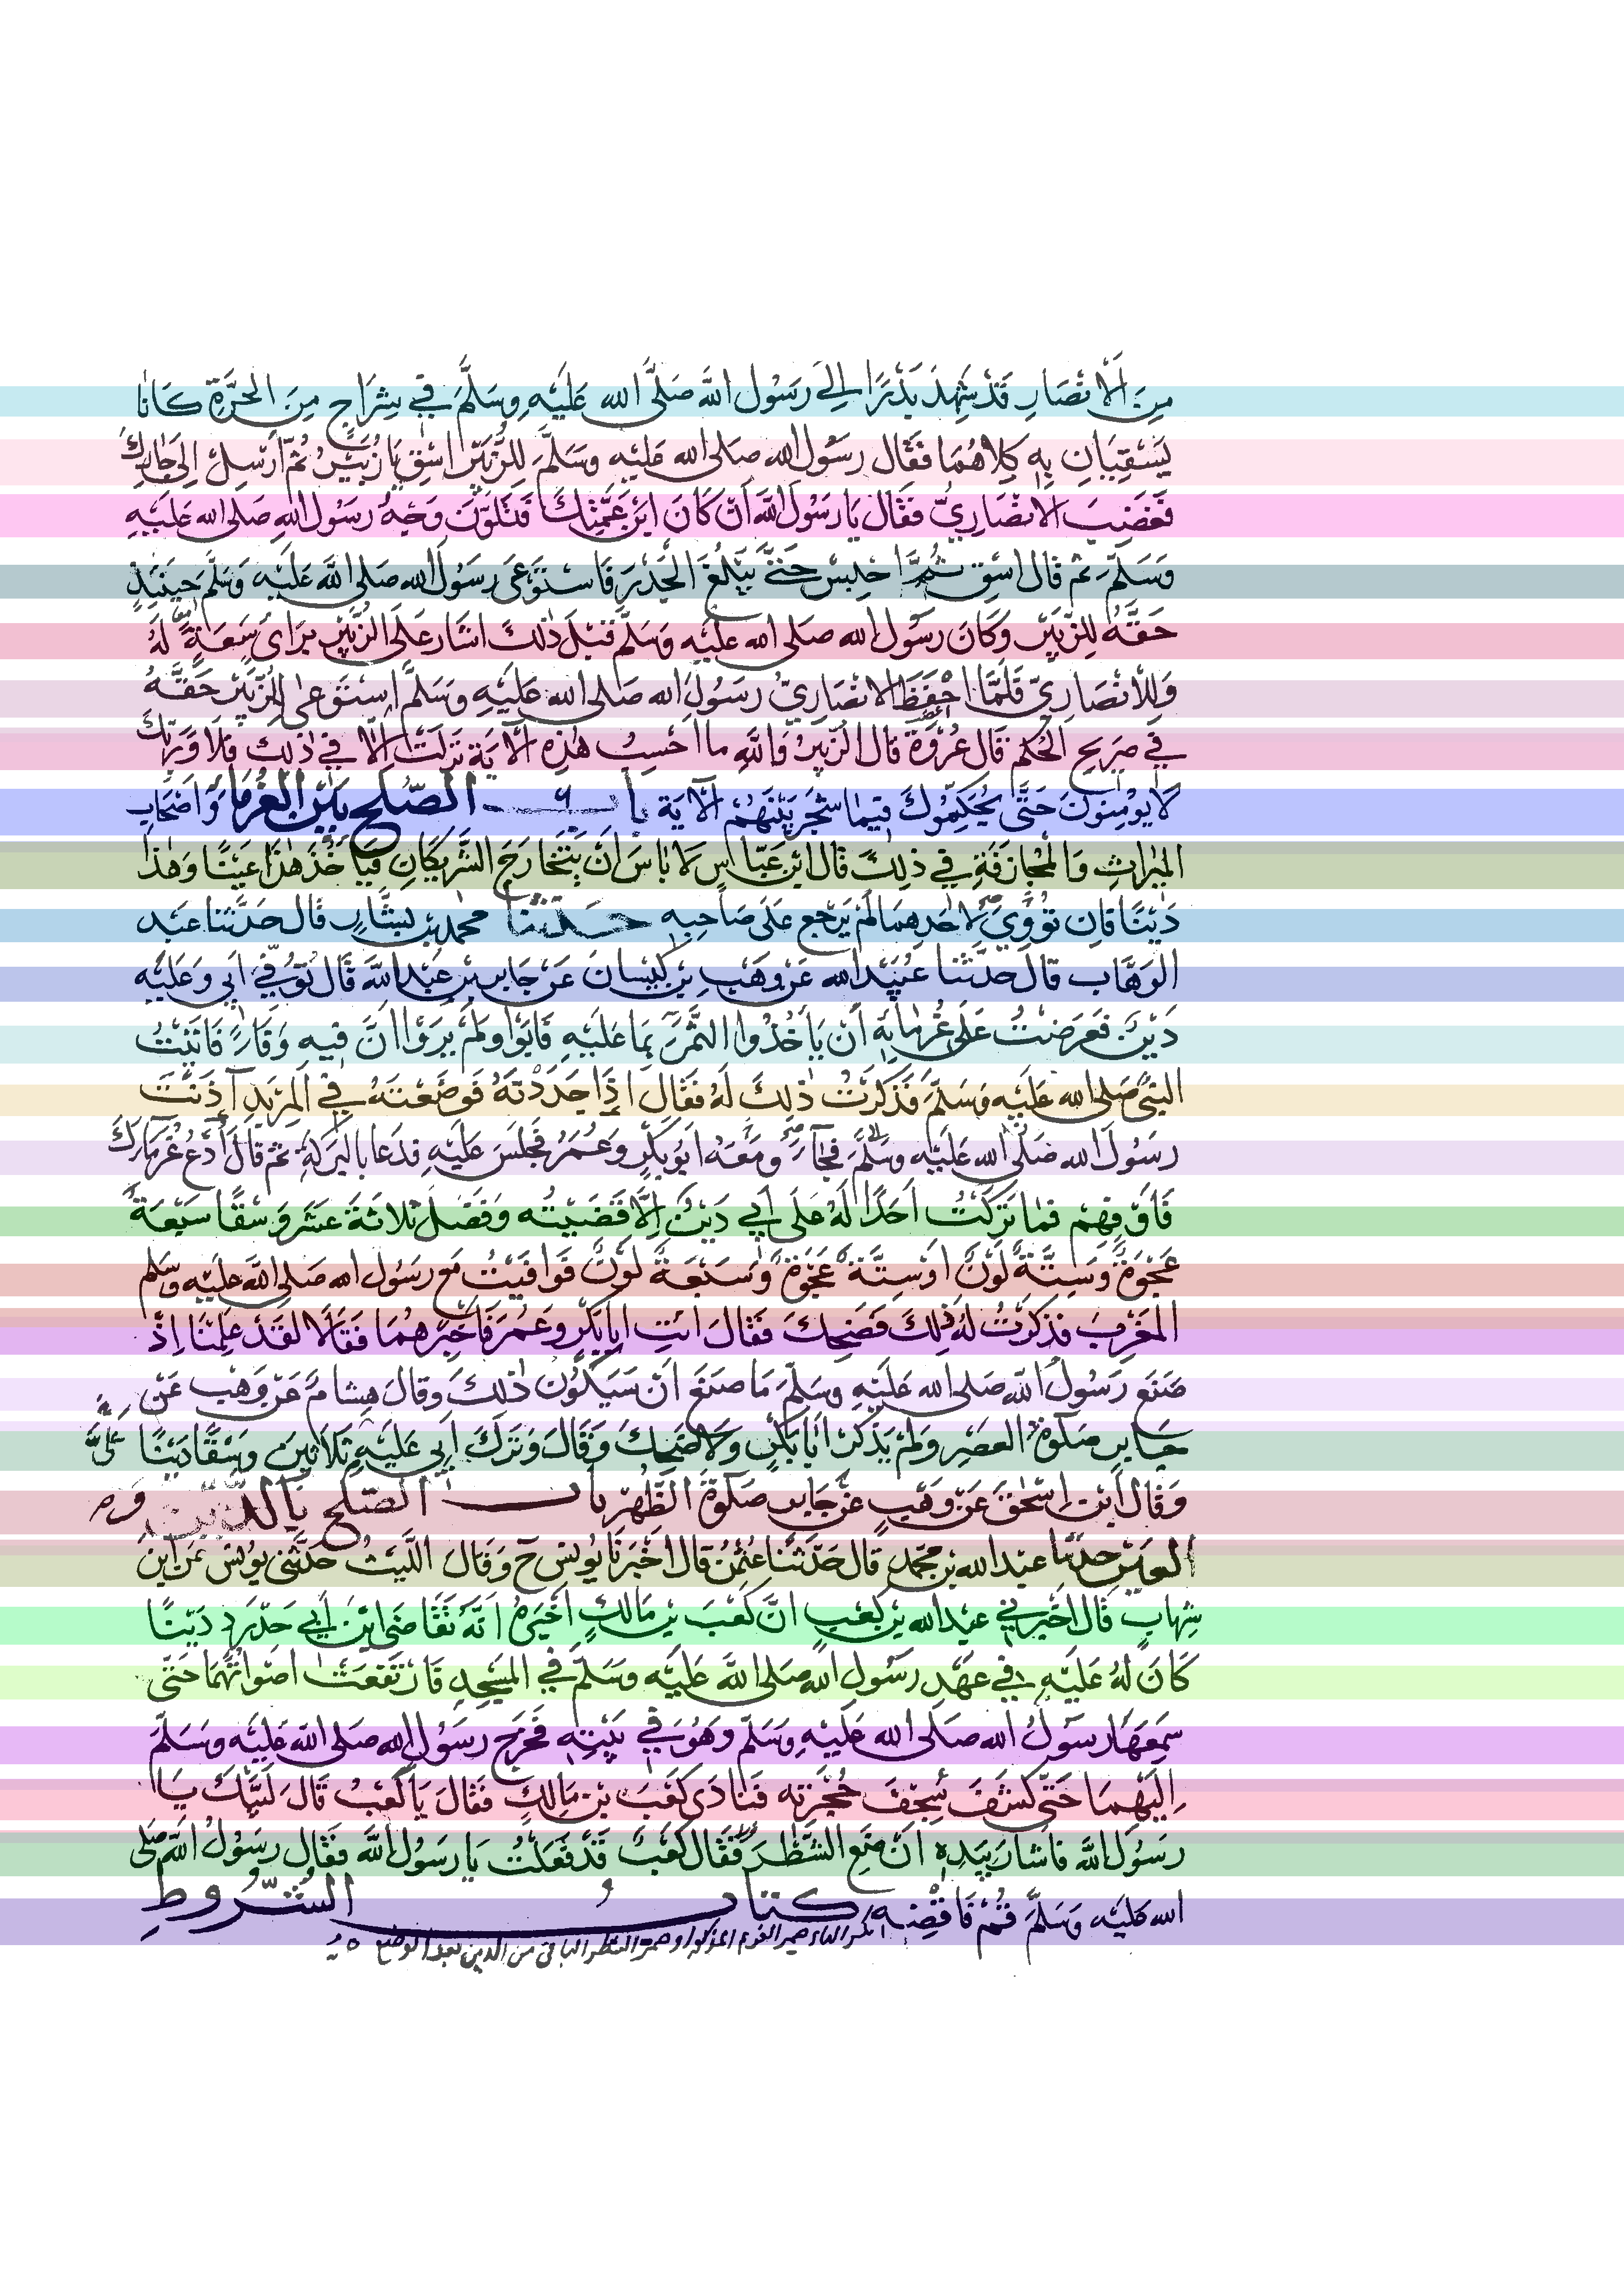 مِنَ الْانْصَارِ قَدْ شَهِدَ بَدْرًا إِلىٰ رَسُول اللَّه صَلَّى الله عَلَيْهِ وَسَلَّمَ فِي شِرَاجٍ مِنَ الحَرَّةِ كَانَا
يَسْقِيَانِ بِهِ كِلَاهُمَا فَقَال رَسُوْل الله صلى الله عليه وَسَلَّمَ لِلزُّبَيْرِ اسْقِ يَا زُبَيْرُ ثُمَّ أَرْسِلْ إِلَى جَارِكَ
فَغَضِبَ الانْصَارِيُّ فَقَال يَا رَسُوْلَ اللَّه أَنْ كَانَ ابْنَ عَمَّتِكَ فَتَلَوَّنَ وَجْهُ رَسُوْل اللهِ صَلى الله عَلَيْهِ
وَسَلَّمَ ثم قال اسْقِ ثُمَّ احْبِسْ حَتّىٰ يَبْلُغَ الْجَدْرَ فَاسْتَوْعَى رَسُوْل الله صلى اللَّه عَلَيْهِ وَسَلَّمَ حِيْنَئِذٍ
حَقَّهُ لِلزُّبَيْرِ وَكَانَ رَسُوْل الله صلى الله عَلَيْه وَسَلَّمَ قَبْلَ ذٰلِكَ اشَارَ عَلَى الزُّبَيْرِ بِرَأىٍ سَعَةٍ لَهُ
وَلِلْانْصَارِيِّ فَلَمَّا احْفَظَ الانْصَارِيُّ رَسُوْلَ الله صَلى الله عَلَيْهِ وَسَلَّمَ اسْتَوْعىٰ لِلزُّبَيْرِ حَقَّهُ
فِي صَرِيْحِ الْحُكْمِ قَالَ عُرْوَةُ قَالَ الزُّبَيْرُ وَاللَّهِ ما احْسِبُ هٰذِهِ الْآيَةَ نَزَلَتْ إِلَّا فِي ذٰلِكَ فَلَا وَرَبِّكَ
لَا يُوْمِنُوْنَ حَتَّى يُحَكِّمُوكَ فِيْمَا شَجَرَ بَيْنَهُمْ الْآيَةَ بَابُ الصُّلْحِ بَيْنَ الْغُرَمَا وَاصْحَابِ
الْمِيْرَاثِ وَالْمُجَازَفَةِ فِي ذٰلِكَ قَالَ ابْنُ عَبَّاسٍ لَا بَاسَ انْ يَتَخَارَجَ الشَّرِيْكَانِ فَيَاخُذَ هٰذَا عَيْنًا وَهٰذَا
دَيْنًا فَإِنْ تَوِيَ لِاحَدِهِمَا لَمْ يَرْجِعْ عَلَى صَاحِبِهِ حَدَّثَنَا محمد بن بَشَّارٍ قَالَ حَدَّثَنَا عَبْد
الْوَهَّابِ قَالَ حَدَّثَنَا عُبَيْد الله عَنْ وَهْبِ بْنِ كَيْسَانَ عَنْ جَابِرِ بْنِ عَبْدِ اللَّه قَالَ تُوُفِّيَ ابِي وَعَلَيْهِ
دَيْنٌ فَعَرَضْتُ عَلَى غُرَمَائِهِ أَنْ يَاخُذُوا التَّمْرَ بِمَا عَلَيْهِ فَابَوْا وَلَمْ يَرَوْا انَّ فِيْهِ وَفَاءً فَاتَيْتُ
النَّبِيَّ صَلى الله عَلَيْه وَسَلَّمَ فَذَكَرْتُ ذٰلِكَ لَهُ فَقَالَ إِذَا جَدَدْتَهُ فَوَضَعْتَهُ فِي الْمِرْبَدِ آذَنْتَ
رَسُوْلَ الله صَلَّى الله عَلَيْه وَسَلَّمَ فَجَاءَ وَمَعَهُ ابُوْبَكْرٍ وَعُمَرُ فَجَلَسَ عَلَيْهِ فَدَعَا بِالْبَرَكَةِ ثم قَالَ ادْعُ غُرَمَاءَكَ
فَاوْفِهِمْ فَمَا تَرَكْتُ احَدًا لَهُ عَلَى أَبِي دَيْنٌ إِلَّا قَضَيْتُه وَفَضَلَ ثَلَاثَةَ عَشَرَ وَسْقًا سَبْعَةٌ
عَجْوَةٌ وَسِتَّةٌ لَوْنٌ اوْ سِتَّةٌ عَجْوَةٌ وَسَبْعَةٌ لَوْنٌ فَوَافَيْتُ مَعَ رَسُوْل الله صَلى اللَّه عَلَيْه وَسَلم
الْمَغْرِبَ فَذَكَرْتُ لَهُ ذٰلِكَ فَضَحِكَ فَقَالَ ائْتِ ابَا بَكْرٍ وَعُمَرَ فَاخْبِرْهُمَا فَقَالَا لَقَدْ عَلِمْنَا إِذْ
صَنَعَ رَسُوْلُ اللَّه صَلى الله عَلَيْهِ وَسَلَّمَ مَا صَنَعَ انْ سَيَكُوْنُ ذٰلِكَ وَقَالَ هِشَامٌ عَنْ وَهْبٍ عَنْ
جَابِرٍ صَلٰوةَ الْعَصْرِ وَلَمْ يَذْكُرْ ابَا بَكْرٍ وَلَا ضَحِكَ وَقَالَ وَتَرَكَ ابِي عَلَيْهِ ثَلَاثِيْنَ وَسْقًا دَيْنًا
وَقَالَ ابْنُ إِسْحٰقَ عَنْ وَهْبٍ عَنْ جَابِرٍ صَلٰوةَ الظُّهْرِ بَابُ الصُّلْحِ بِالدَّيْنِ وَ
الْعَيْنِ حَدَّثَنَا عَبْد الله بن مُحَمَّدٍ قَالَ حَدَّثَنَا عُثْمٰنُ قَالَ اخْبَرَنَا يُوْنُسُ ح وَقَالَ اللَّيْثُ حَدَّثَنِي يُوْنُسُ عَنِ ابْنِ
شِهَابٍ قَالَ اخْبَرَنِي عَبْد الله بْن كَعْبٍ انَّ كَعْبَ بْنَ مَالِكٍ اخْبَرَهُ انَّهُ تَقَاضَى ابْنَ ابِي حَدْرَدٍ دَيْنًا
كَانَ لَهُ عَلَيْهِ فِي عَهْدِ رَسُوْل الله صَلى اللَّه عَلَيْه وَسَلَّمَ فِي الْمَسْجِدِ فَارْتَفَعَتْ اصْوَاتُهُمَا حَتّى
سَمِعَهَا رَسُوْلُ الله صَلَى الله عَلَيْهِ وَسَلَّمَ وَهُوَ فِي بَيْتِهِ فَخَرَجَ رَسُوْل الله صَلى اللَّه عَلَيْه وَسَلَّمَ
إِلَيْهِمَا حَتّى كَشَفَ سِجْفَ حُجْرَتِهِ فَنَادَى كَعْبَ بْنَ مَالِكٍ فَقَالَ يَا كَعْبُ قَالَ لَبَّيْكَ يَا
رَسُوْلَ اللَّه فَاشَارَ بِيَدِهِ انْ ضَعِ الشَّطْرَ فَقَالَ كَعْبٌ قَدْ فَعَلْتُ يَا رَسُوْلَ اللَّه فَقَالَ رَسُوْلُ اللَّه صَلى
الله عَلَيْه وَسَلَّمَ قُمْ فَاقْضِهِ كتَابُ الشُّرُوْطِ